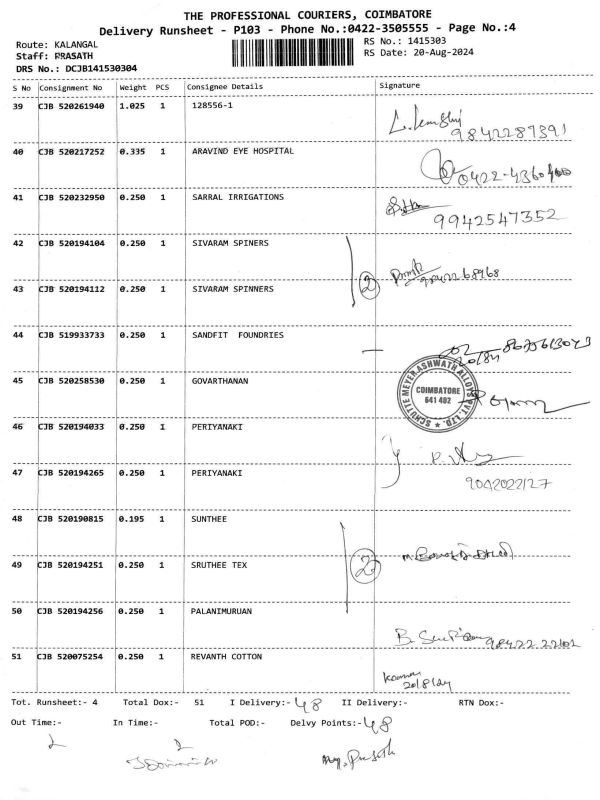 THE PROFESSIONAL COURIERS, COIMBATORE
Delivery Runsheet - P103 - Phone No.:0422-3505555 - Page No.:4
Route: KALANGAL
Staff: PRASATH
DRS No.: DCJB141530304
RS No.: 1415303
RS Date: 20-Aug-2024
S No Consignment No Weight PCS Consignee Details Signature
39 CJB 520261940 1.025 1 128556-1
9842287391
40 CJB 520217252 0.335 1 ARAVIND EYE HOSPITAL
0422-4360400
41 CJB 520232950 0.250 1 SARRAL IRRIGATIONS
9942547352
42 CJB 520194104 0.250 1 SIVARAM SPINERS
2
9842268968
43 CJB 520194112 0.250 1 SIVARAM SPINNERS
44 CJB 519933733 0.250 1 SANDFIT FOUNDRIES
45 CJB 520258530 0.250 1 GOVARTHANAN
SCHUTTE MEYER ASHWATH ALLOYS PVT. LTD.
COIMBATORE
641 402
46 CJB 520194033 0.250 1 PERIYANAKI
47 CJB 520194265 0.250 1 PERIYANAKI
9042022127
48 CJB 520190815 0.195 1 SUNTHEE
2
49 CJB 520194251 0.250 1 SRUTHEE TEX
50 CJB 520194256 0.250 1 PALANIMURUAN
51 CJB 520075254 0.250 1 REVANTH COTTON
20/8/24
Tot. Runsheet:- 4 Total Dox:- 51 I Delivery:- 48 II Delivery:- RTN Dox:-
Out Time:- In Time:- Total POD:- Delvy Points:- 48